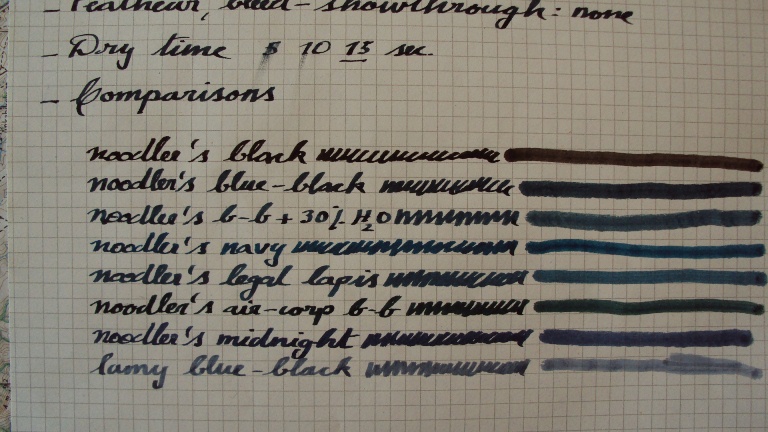 - Feather, bleed-showthrough: none
- Dry time 5 10 15 sec.
- Comparisons
noodler's black
noodler's blue-black
noodler's b-b + 30% H2O
noodler's navy
noodler's legal lapis
noodler's air-corp b-b
noodler's midnight
lamy blue-black